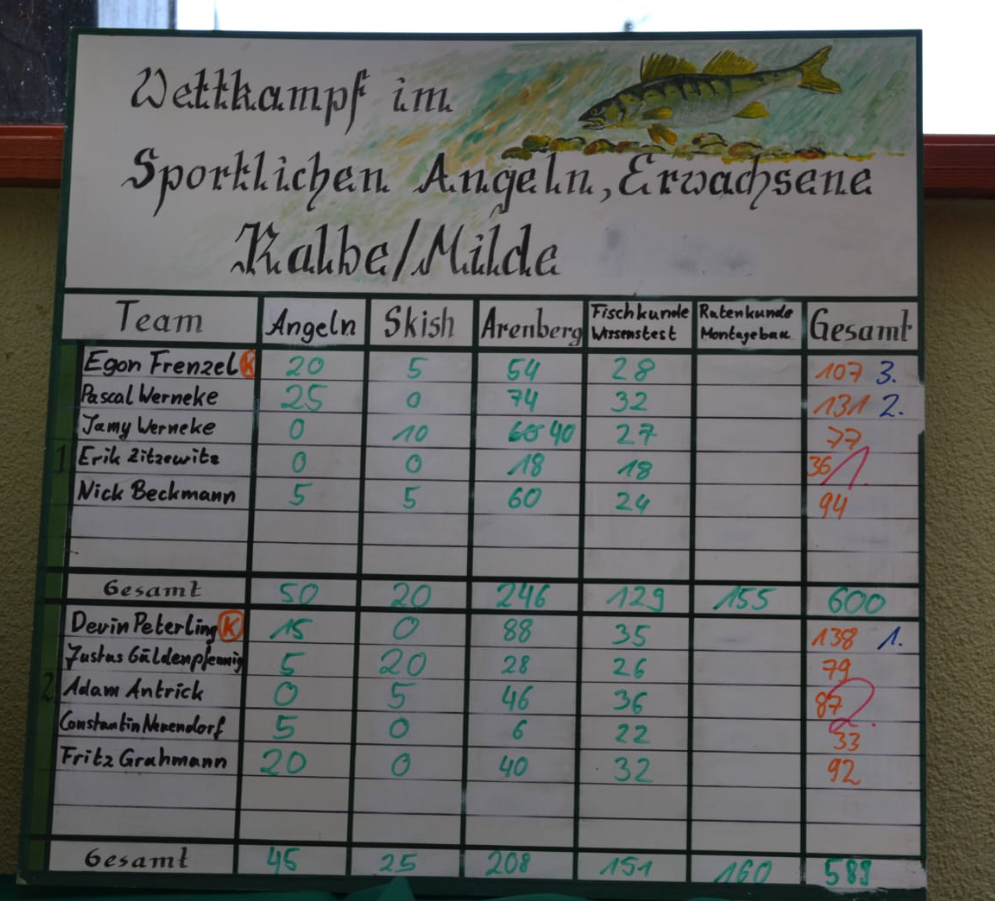 Wettkampf im
Sportlichen Angeln, Erwachsene
Kalbe/Milde
Team Angeln Skish Arenberg Fischkunde Wissenstest Rutenkunde Montagebau Gesamt
Egon Frenzel K 20 5 54 28 107 3.
Pascal Werneke 25 0 74 32 131 2.
Jamy Werneke 0 10 40 27 77
1 Erik Zitzewitz 0 0 18 18 36 1.
Nick Beckmann 5 5 60 24 94
Gesamt 50 20 246 129 155 600
Devin Peterling K 15 0 88 35 138 1.
Justus Güldenpfennig 5 20 28 26 79
2 Adam Antrick 0 5 46 36 87 2.
Constantin Neuendorf 5 0 6 22 33
Fritz Grahmann 20 0 40 32 92
Gesamt 45 25 208 151 160 589